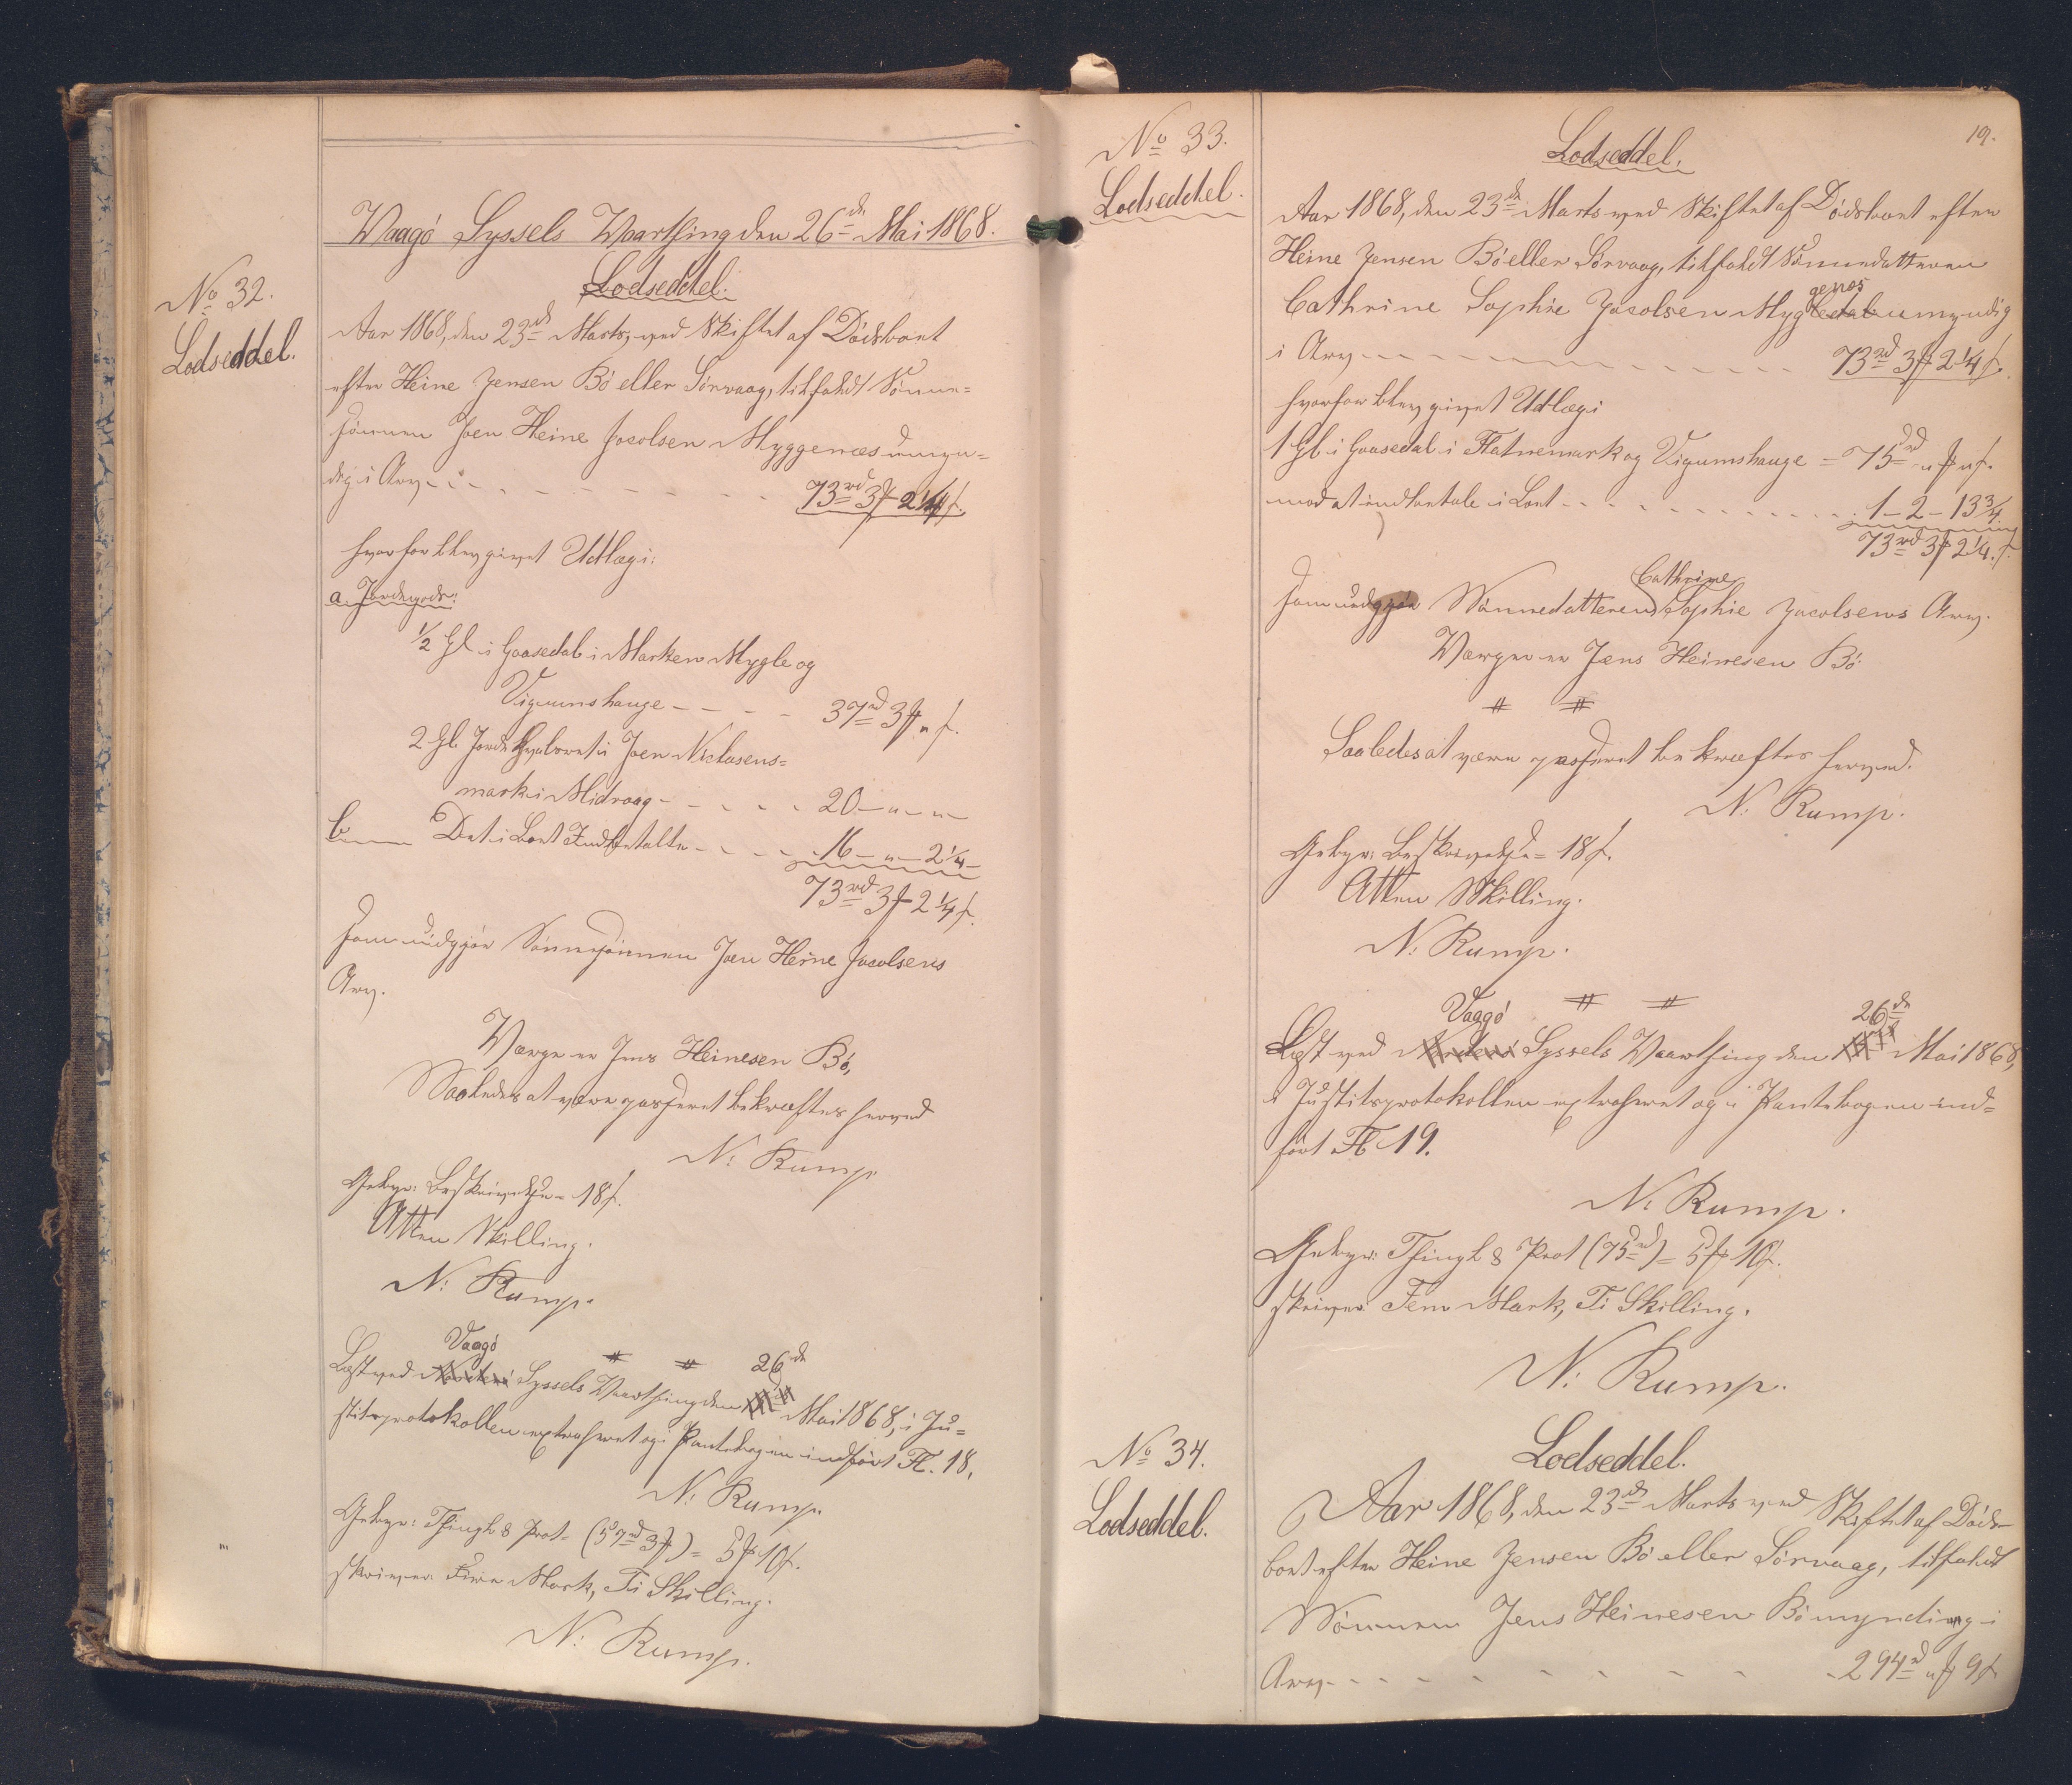 Waagø Syssels Vaarthing den 26de Mai 1868.
No 32.
Lodseddel.
Lodseddel.
Aar 1868, den 23de Marts, ved Skiftet af Dødsboet
efter Heine Jensen Bø eller Sørvaag, tilfaldt Sønne-
sønnen Joen Heine Jacobsen Myggenæs umyn-
dig i Arv - - - - - - 73rd 3 ₻ 2 1/4 s.
hvorfor blev givet Udlæg i:
a. Jordegods:
1/2 Gl. i Gaasedal i Marken Mygle og
Vigumshauge - - - - 37rd 3 ₻ " s.
2 Gl. Jord i Joen Niclasens-
mark i Midvaag - - - - - 20 - " - " -
b. Det i Boet Indbetalte - - - - 16 - " - 2 1/4 -
73rd 3 ₻ 2 1/4 s.
som udgjør Sønnesønnen Joen Heine Jacobsens
Arv.
Værge er Jens Heinesen Bø,
Saaledes at være passeret bekræftes herved
N: Rump.
Gebyr: Beskrivelse = 18 s.
Atten Skilling.
N: Rump.
Vaagø 26de
Læst ved Syssels Vaarthing den Mai 1868, i Ju-
stitsprotokollen extraheret og i Pantebogen indført Fl. 18.
N: Rump.
Gebyr: Thingl & Prot. (57rd 3 ₻) = 5 ₻ 10 s.
skriver Fem Mark, Ti Skilling.
N: Rump.
No 33.
Lodseddel.
19.
Lodseddel.
Aar 1868, den 23de Marts ved Skiftet af Dødsboet efter
Heine Jensen Bø eller Sørvaag, tilfaldt Sønnedatteren
genæs
Cathrine Sophie Jacobsen Myg umyndig
i Arv - - - - - - - 73rd 3 ₻ 2 1/4 s.
hvorfor blev givet Udlæg i
1 Gl. i Gaasedal i Flatnemark og Vigumshauge = 75rd " ₻ " s.
mod at indbetale i Boet - - - - - - 1 - 2 - 13 3/4
73rd 3 ₻ 2 1/4 s.
Cathrine
som udgjør Sønnedatteren Sophie Jacobsens Arv.
Værge er Jens Heinesen Bø
Saaledes at være passeret bekræftes herved.
N: Rump.
Gebyr: Beskrivelse = 18 s.
Atten Skilling.
N: Rump.
Vaagø 26de
Læst ved Syssels Vaarthing den Mai 1868,
i Justitsprotokollen extraheret og i Pantebogen ind-
ført Fl 19.
N: Rump.
Gebyr: Thingl & Prot (75rd) = 5 ₻ 10 s.
skriver Fem Mark, Ti Skilling.
N: Rump.
No 34.
Lodseddel.
Lodseddel.
Aar 1868, den 23de Marts ved Skiftet af Døds-
boet efter Heine Jensen Bø eller Sørvaag, tilfaldt
Sønnen Jens Heinesen Bø myndig i
Arv - - - - - - - 294rd " ₻ 9 s